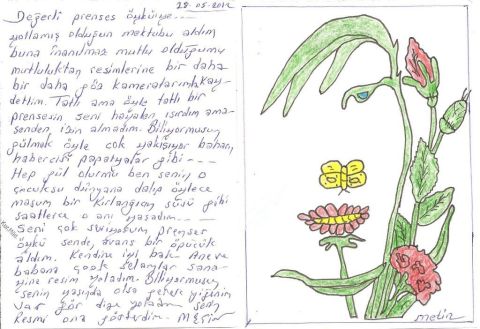 28-05-2012
Değerli prenses öyküye----
yollamış olduğun mektubu aldım
buna inanılmaz mutlu olduğumu
mutluluktan resimlerine bir daha
bir daha göz kameralarımla kay-
dettim. Tatlı ama öyle tatlı bir
prensesin, seni hayalen ısırdım ama-
senden izin almadım. Biliyormusun
gülmek öyle çok yakışıyor baharı,
habercisi papatyalar gibi---
Hep gül olurmu ben senin o
çocuksu dünyana dalıp öylece
masum bir Kırlangıcın süsü gibi
saatlerce o anı yaşadım----
Seni çok seviyorum prenses
öykü sende, avans bir öpücük
aldım. Kendine iyi bak Anne ve
babana çook selamlar sana
yine resim yolladım. Biliyormusun
senin yaşında olsa yeğenim
var gör diye yolladım senin
Resmi ona gösterdim- Metin
metin